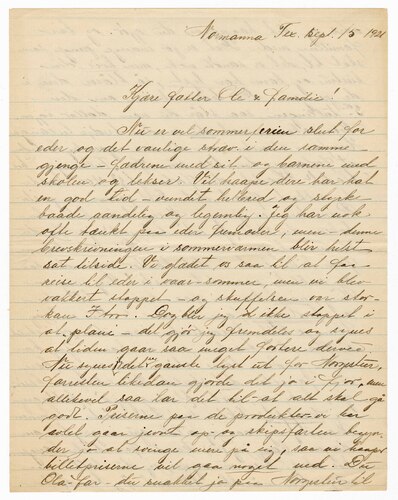 Normanna Tex. Sept. 15 1921
Kjære Faster Ole & Familie!
Nu er vel sommerferien slut for
eder og det vanlige stræv i den samme
gjenge – fædrene med sit og barnene med
skolen og lekser. Vil haape dere har hat
en god tid – vundet helbred og styrke
baade aandelig og legemlig. Jeg har nok
ofte tænkt paa eder, men – denne
brevskrivningen i sommervarmen blir helst
sat tilside. Vi glædet os saa til at faa
reise til eder i vaar-sommer, men vi blev
vakkert stoppet – og skuffelsen var stor
kan I tro. Dog blev jeg ikke stoppet i
at plane – det gjør jeg fremdeles og synes
at tiden gaar saa meget fortere derved
Nu synes det ganske lyst ut for
forresten likedan gjorde det jo i Fjor, men
allikevel saa lar det til at alt skal gå
godt. Priserne paa de produkter vi har
avlet gaar jevnt op og skipsfarten begyn-
der jo at svinge mere på sig, saa vi haaper
billetpriserne vil gaa noget ned. Du
Ola-far – du snakket jo paa til